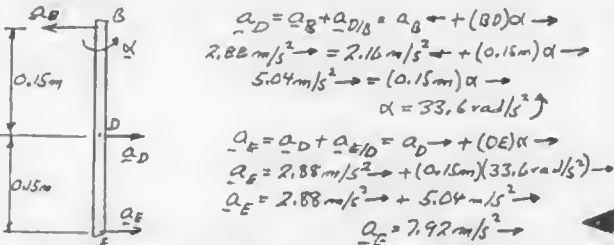 a_B B
α
0.15m
D
a_D
0.15m
a_E
E
a_D = a_B + a_D/B = a_B ← + (BD)α →
2.88 m/s² → = 2.16 m/s² ← + (0.15m)α →
5.04 m/s² → = (0.15m)α →
α = 33.6 rad/s² ↺
a_E = a_D + a_E/D = a_D → + (DE)α →
a_E = 2.88 m/s² → + (0.15m)(33.6 rad/s²) →
a_E = 2.88 m/s² → + 5.04 m/s² →
a_E = 7.92 m/s² →